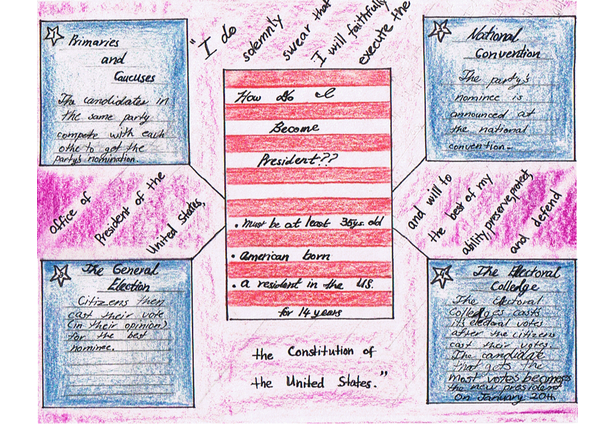 "I do
solemnly
swear that
I will faithfully
execute the
Office of
President of the
United States,
and will to
the best of my
ability, preserve, protect,
and defend
the Constitution of
the United States."
Primaries
and
Caucuses
The candidates in
the same party
compete with each
othe to get the
party's nomination.
National
Convention
The party's
nominee is
announced at
the national
convention.
How do I
Become
President??
• Must be at least 35yrs old
• American born
• a resident in the US.
for 14 years
The General
Election
Citizens then
cast their vote
(in their opinion)
for the best
nominee.
The Electoral
Colledge
The Electoral
Colledges casts
its electoral votes
after the citizens
cast their votes.
The candidate
that gets the
most votes becomes
the new president
on January 20th.